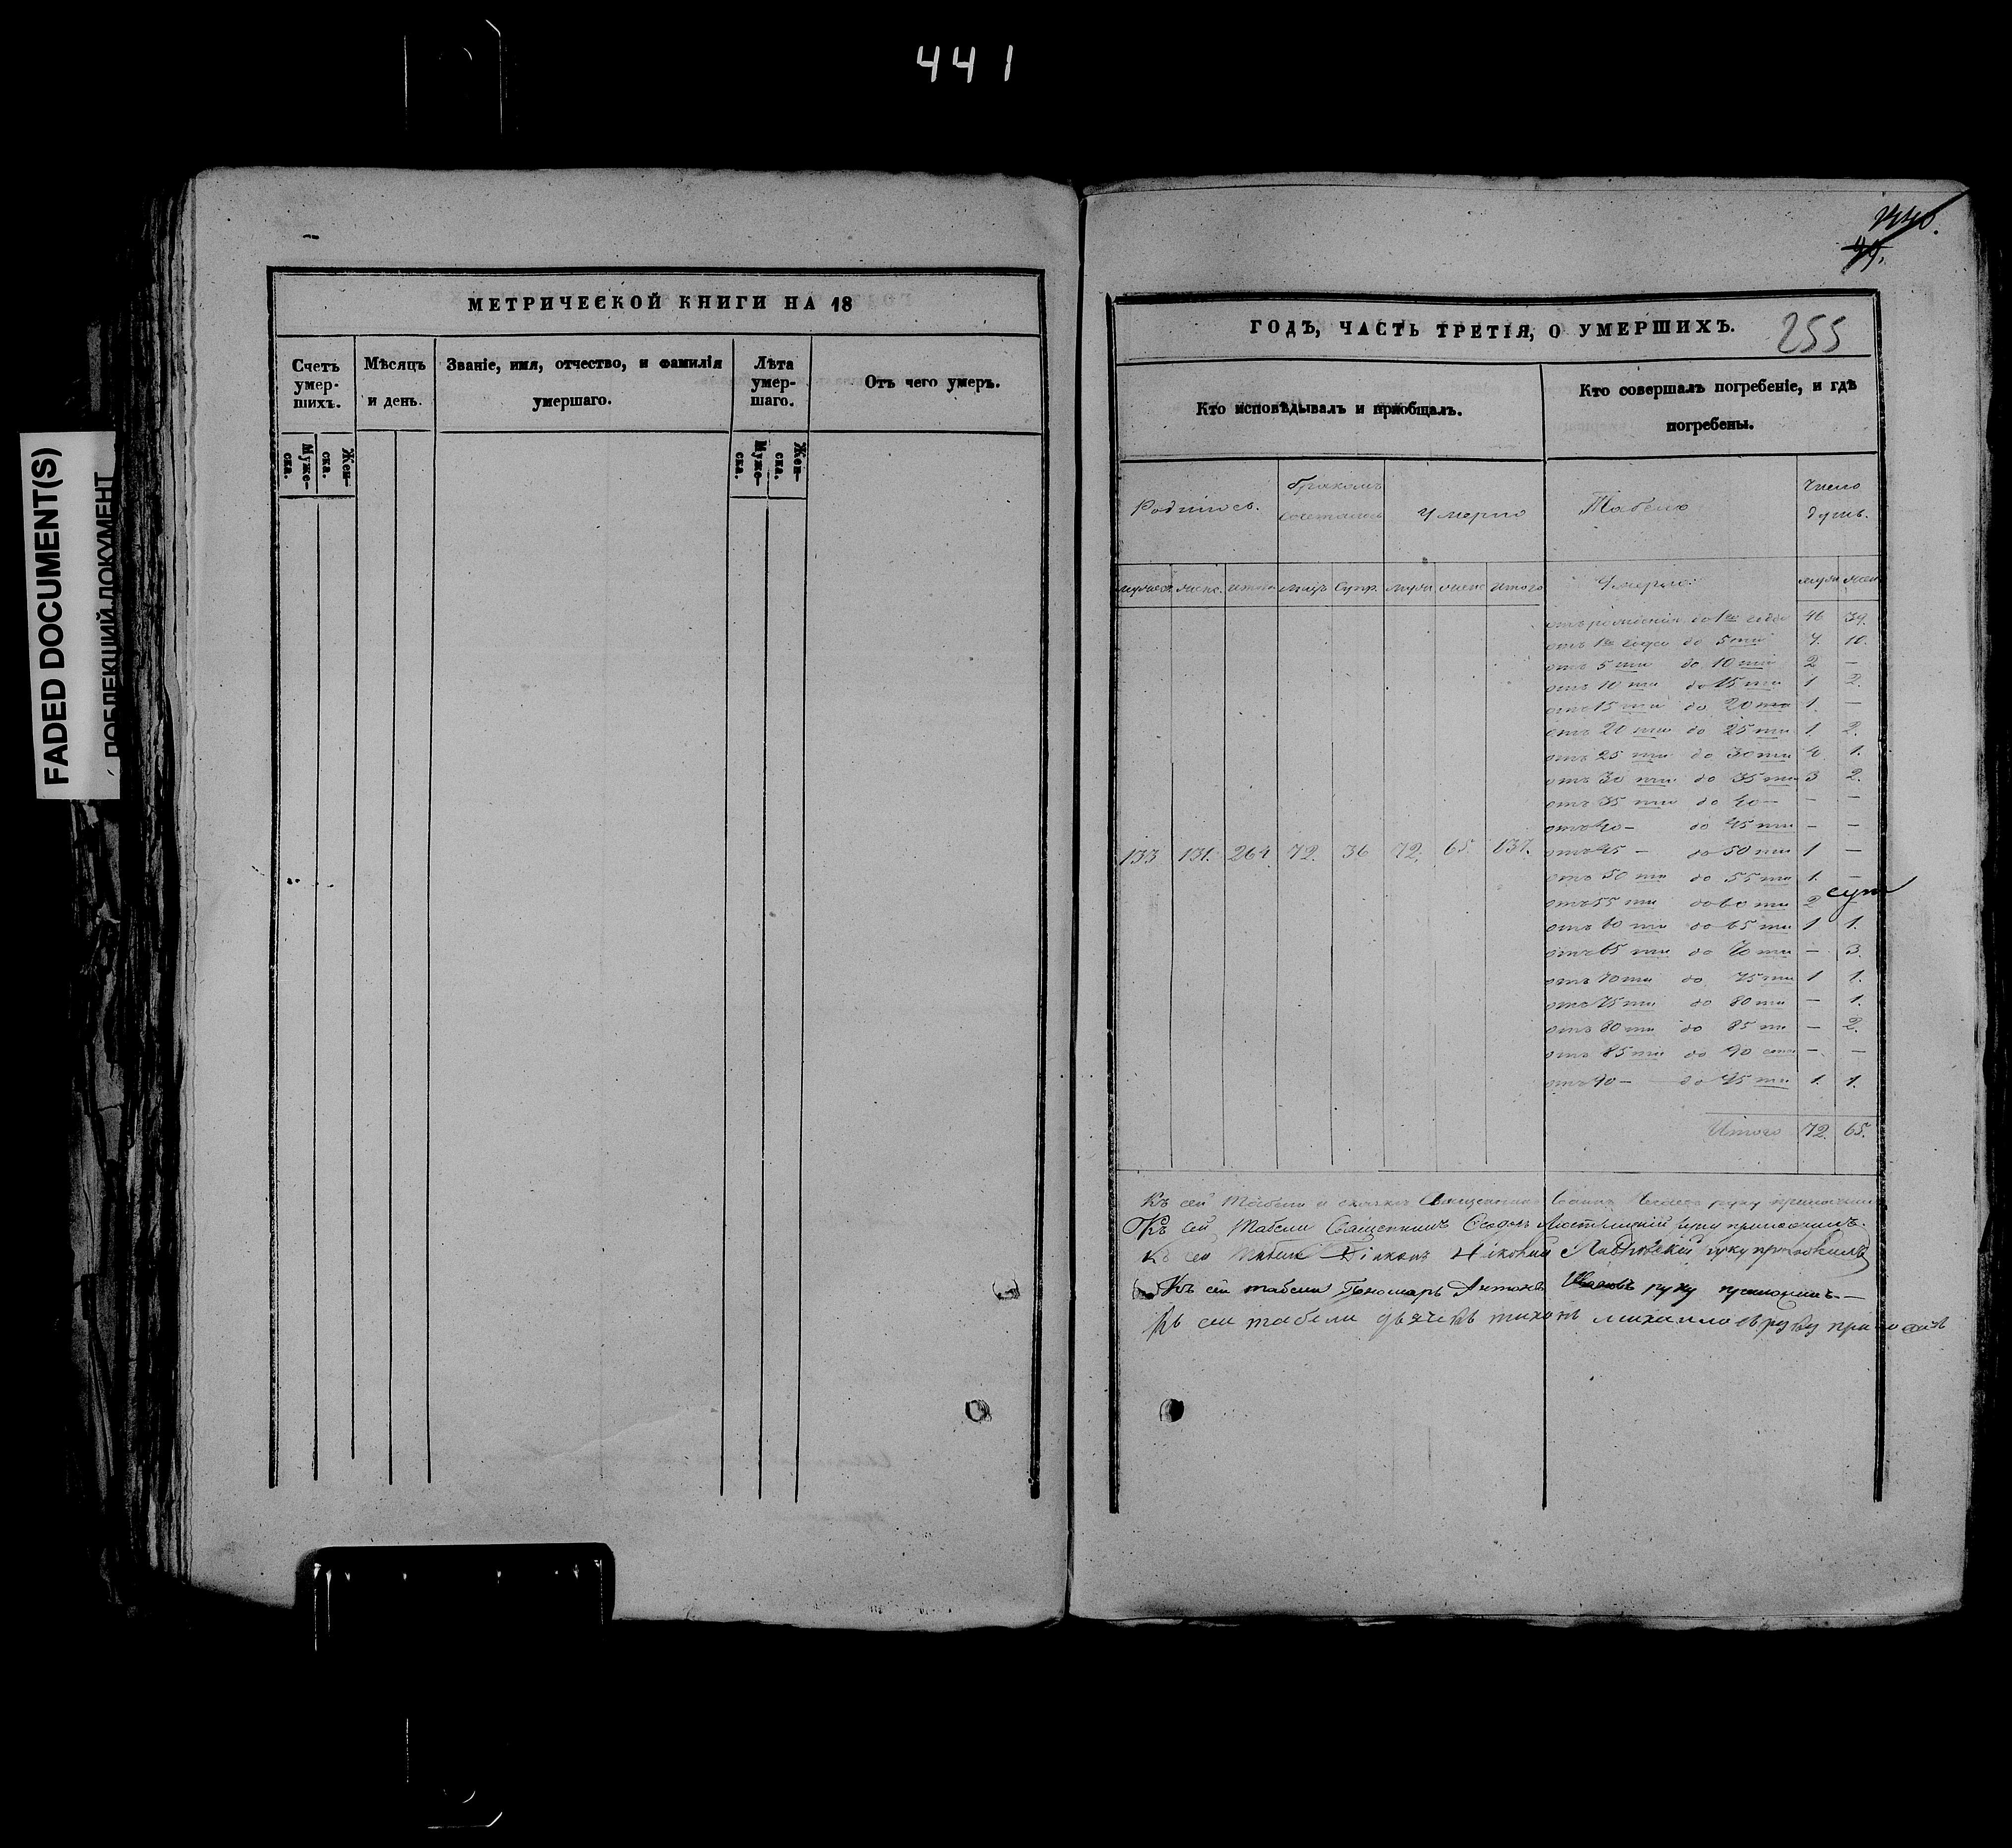 441
FADED DOCUMENT(S)
ПОБЛЕКШИЙ ДОКУМЕНТ
МЕТРИЧЕСКОЙ КНИГИ НА 18
Счетъ умершихъ.
Мѣсяцъ и день.
Званіе, имя, отчество, и фамилія
умершаго.
Лѣта умершаго.
Отъ чего умеръ.
Мужеска.
Женска.
Мужеска.
Женска.
ГОДЪ, ЧАСТЬ ТРЕТІЯ, О УМЕРШИХЪ.
255
Кто исповѣдывалъ и пріобщалъ.
Кто совершалъ погребеніе, и гдѣ
погребены.
Родилось.
бракомъ
Умерло
Табель
Число
душъ.
133 131. 264. 72. 36 72. 65. 137.
отъ рожденія до 1го года 46 39.
отъ 1го года до 5ти 7. 10.
отъ 5ти до 10ти 2 —
отъ 10ти до 15ти 1 2.
отъ 15ти до 20ти 1. —
отъ 20ти до 25ти 1. 2.
отъ 25ти до 30ти 4 1.
отъ 30ти до 35ти 3 2.
отъ 35ти до 40 — — —
отъ 40 — до 45ти — —
отъ 45 — до 50ти 1 —
отъ 50ти до 55ти 1. —
отъ 55ти до 60ти 2
отъ 60ти до 65ти 1 1.
отъ 65ти до 70ти — 3.
отъ 70ти до 75ти 1 1.
отъ 75ти до 80ти — 1.
отъ 80ти до 85ти — 2.
отъ 85ти до 90 — —
отъ 90 — до 95ти 1. 1.
Итого 72. 65.
Къ сей Табели Священникъ руку приложилъ
Къ сей Табели Священникъ Ѳеодоръ руку приложилъ.
Къ сей Табели Діаконъ руку приложилъ
Къ сей табели Пономарь Антонъ руку приложилъ —
Къ сей табели дьячекъ тихонъ михаиловъ руку приложилъ